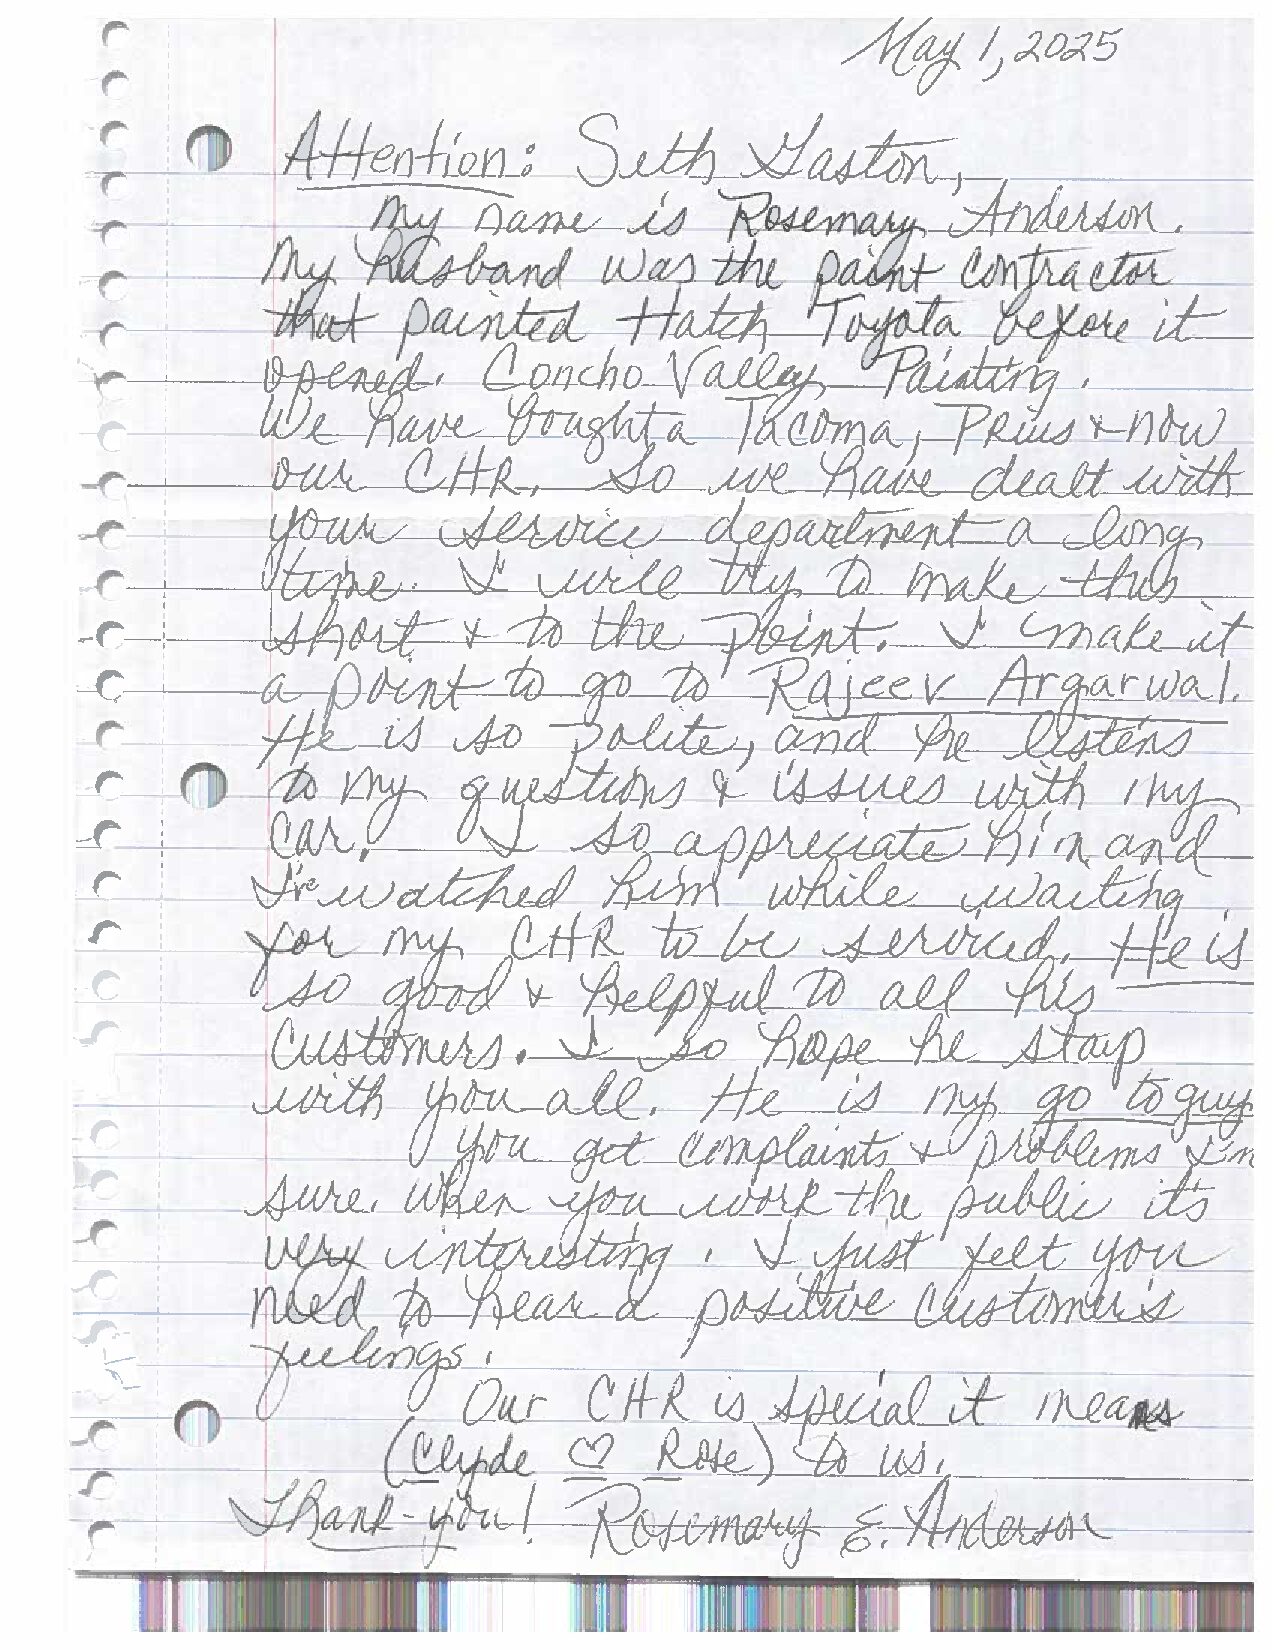 May 1, 2025
Attention: Seth Gaston,
My name is Rosemary Anderson.
My husband was the paint contractor
that painted Hatch Toyota before it
opened. Concho Valley Painting.
We have bought a Tacoma, Prius & now
our CHR. So we have dealt with
your service department a long
time. I will try to make this
short & to the point. I make it
a point to go to Rajeev Argarwal.
He is so polite, and he listens
to my questions & issues with my
car. I so appreciate him and
I've watched him while waiting
for my CHR to be serviced. He is
so good & helpful to all his
customers. I so hope he stays
with you all. He is my go to guy
You get complaints & problems I'm
sure. When you work the public it's
very interesting. I just felt you
need to hear a positive customer's
feelings.
Our CHR is special it means
(Clyde ♡ Rose) to us.
Thank-you! Rosemary E. Anderson